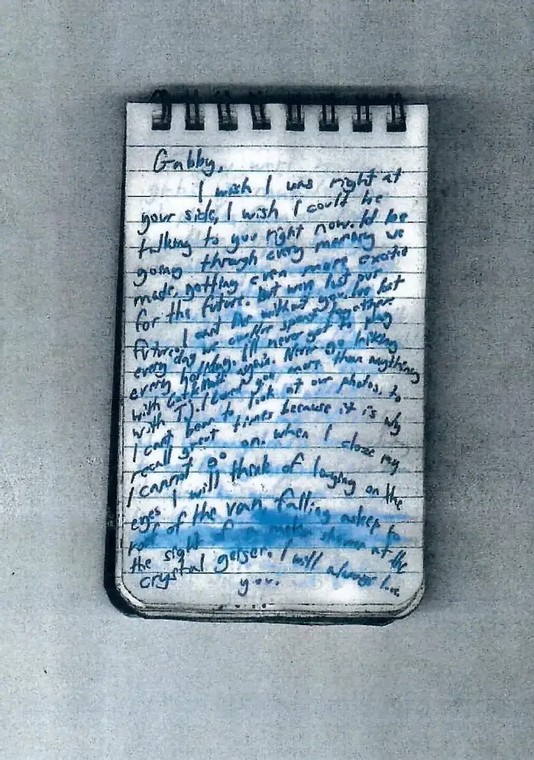 Gabby,
I wish I was right at
your side, I wish I could be
talking to you right now. Id be
going through every memory we
made, getting even more excited
for the future. but we've lost our
future. I cant live without you. Ive lost
every day we could've spent together
every holiday. I'll never get to play
with again. Never go hiking
with TJ. I loved you more than anything
I cant bear to look at our photos, to
recall great times because it is why
I cannot go on. when I close my
eyes I will think of laughing on the
roof of the van, falling asleep to
the sight of a meteor shower at the
crystal geiser. I will always love
you.